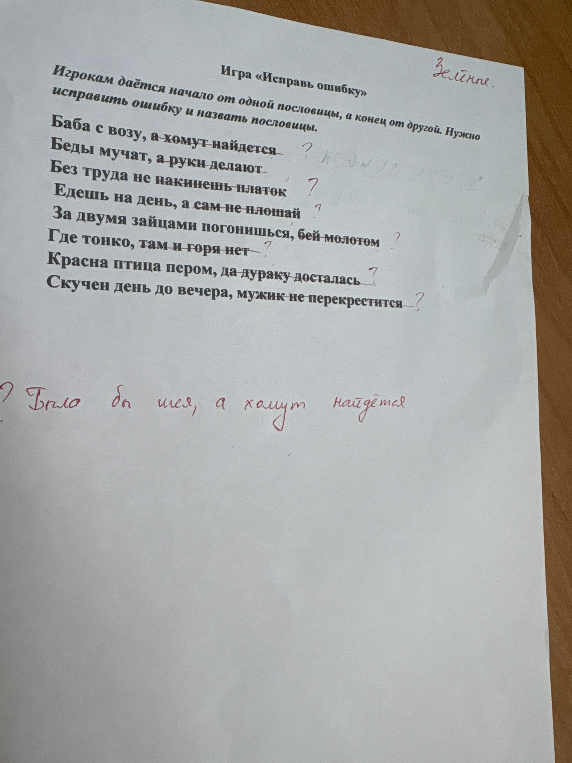 Зелёные.
Игра «Исправь ошибку»
Игрокам даётся начало от одной пословицы, а конец от другой. Нужно
исправить ошибку и назвать пословицы.
Баба с возу, а хомут найдется ?
Беды мучат, а руки делают
Без труда не накинешь платок ?
Едешь на день, а сам не плошай ?
За двумя зайцами погонишься, бей молотом ?
Где тонко, там и горя нет ?
Красна птица пером, да дураку досталась ?
Скучен день до вечера, мужик не перекрестится ?
? Была бы шея, а хомут найдётся